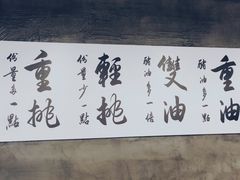 重油
豬油多一點
雙油
豬油多一倍
輕挑
份量少一點
重挑
份量多一點